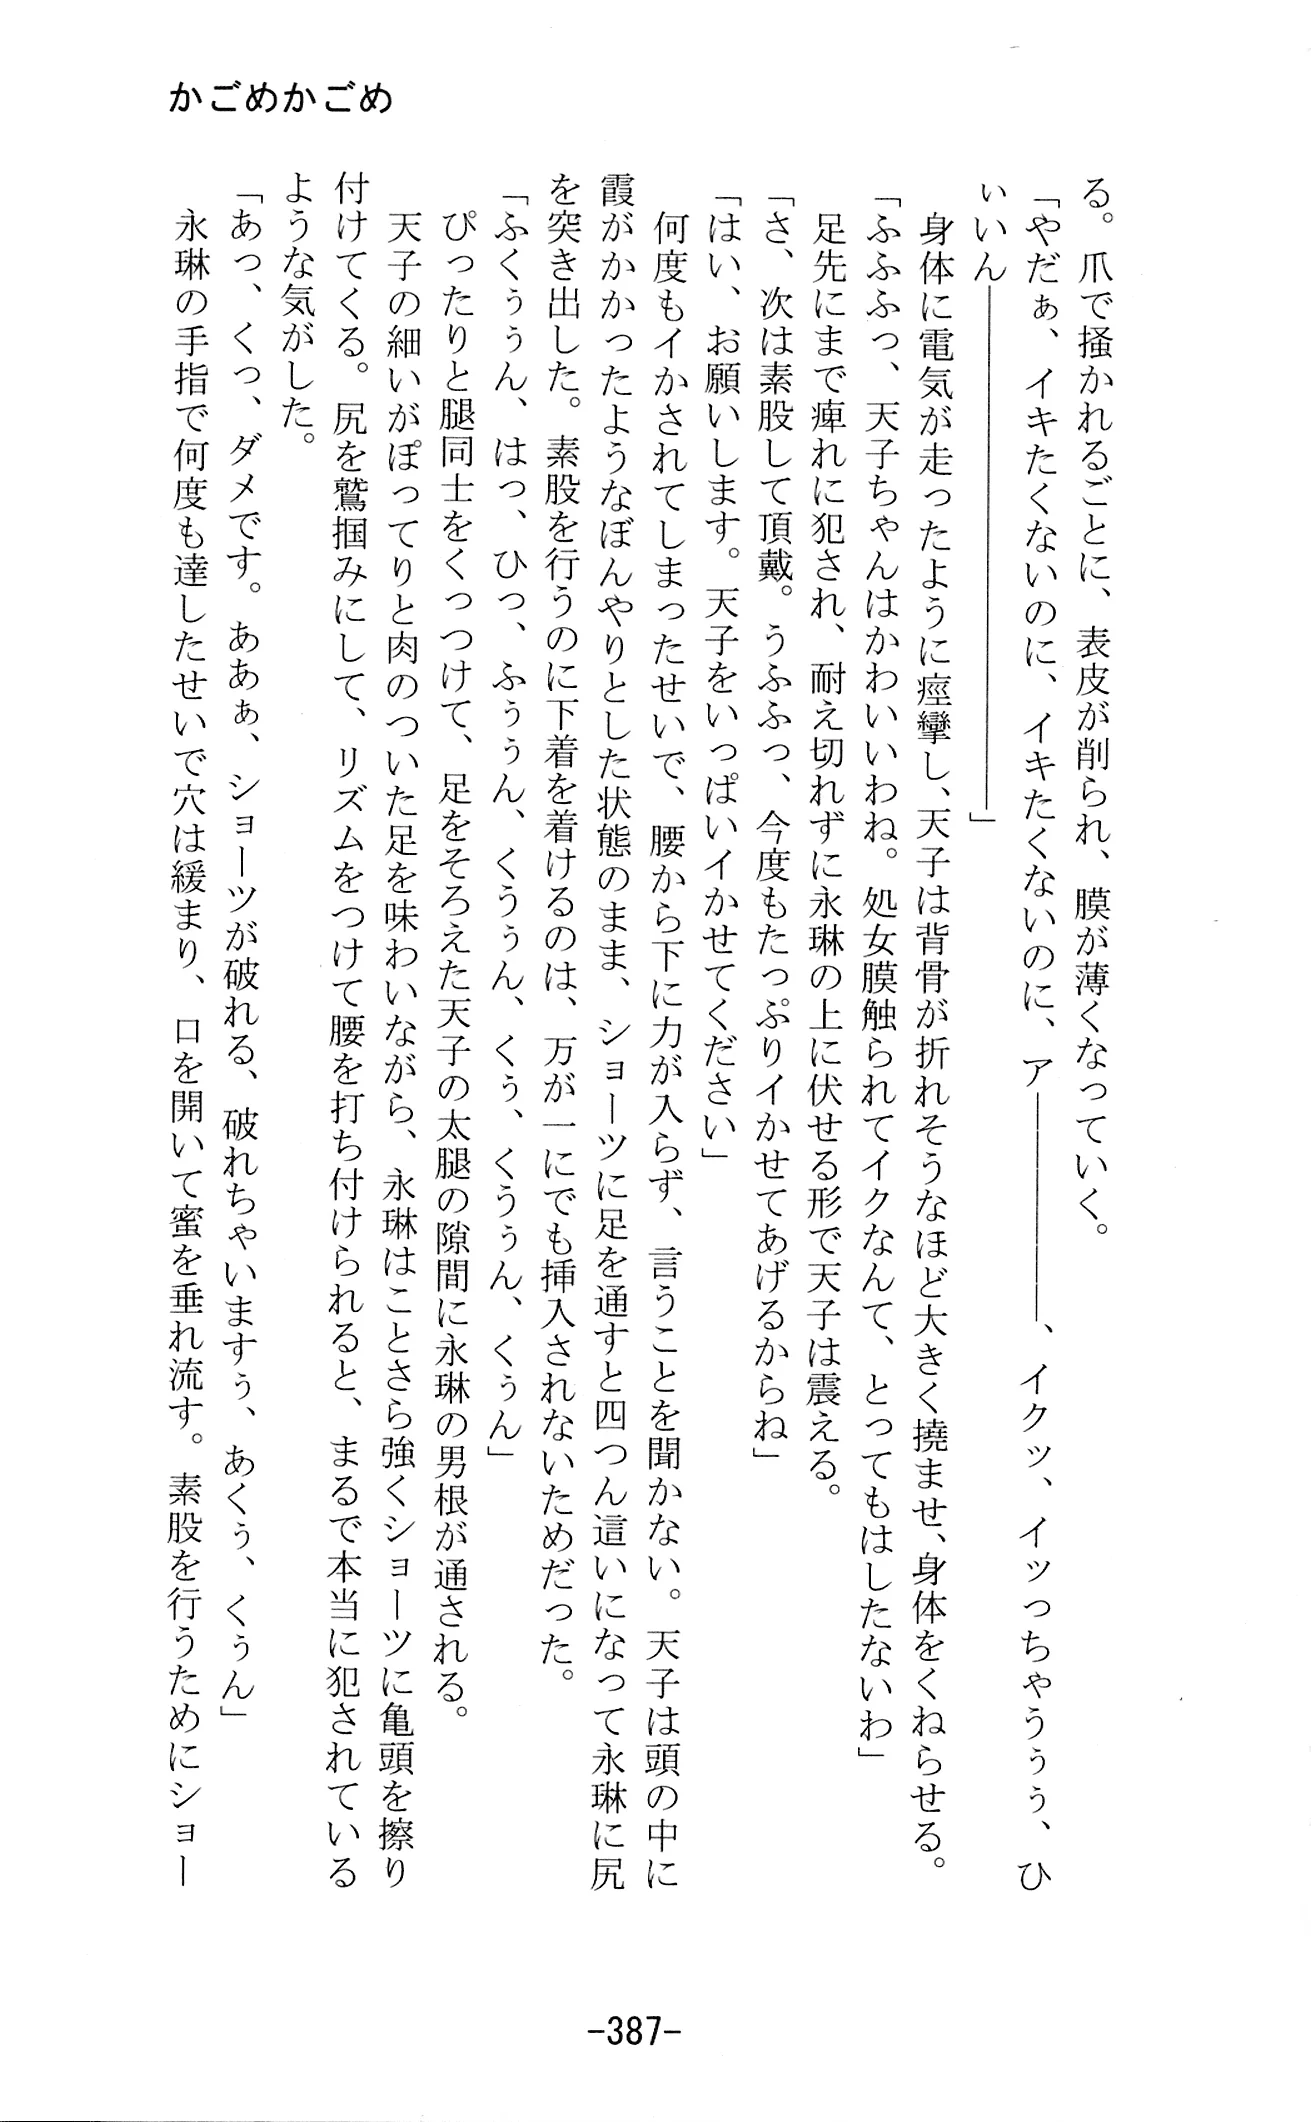 かごめかごめ
る。爪で掻かれるごとに、表皮が削られ、膜が薄くなっていく。
「やだぁ、イキたくないのに、イキたくないのに、ア――――――、イクッ、イッっちゃうぅぅ、ひ
ぃいん――――――――――――――」
　身体に電気が走ったように痙攣し、天子は背骨が折れそうなほど大きく撓ませ、身体をくねらせる。
「ふふふっ、天子ちゃんはかわいいわね。処女膜触られてイクなんて、とってもはしたないわ」
　足先にまで痺れに犯され、耐え切れずに永琳の上に伏せる形で天子は震える。
「さ、次は素股して頂戴。うふふっ、今度もたっぷりイかせてあげるからね」
「はい、お願いします。天子をいっぱいイかせてください」
　何度もイかされてしまったせいで、腰から下に力が入らず、言うことを聞かない。天子は頭の中に
霞がかかったようなぼんやりとした状態のまま、ショーツに足を通すと四つん這いになって永琳に尻
を突き出した。素股を行うのに下着を着けるのは、万が一にでも挿入されないためだった。
「ふくぅぅん、はっ、ひっ、ふぅぅん、くうぅん、くぅ、くうぅん、くぅん」
　ぴったりと腿同士をくっつけて、足をそろえた天子の太腿の隙間に永琳の男根が通される。
　天子の細いがぽってりと肉のついた足を味わいながら、永琳はことさら強くショーツに亀頭を擦り
付けてくる。尻を鷲掴みにして、リズムをつけて腰を打ち付けられると、まるで本当に犯されている
ような気がした。
「あっ、くっ、ダメです。ああぁ、ショーツが破れる、破れちゃいますぅ、あくぅ、くぅん」
　永琳の手指で何度も達したせいで穴は緩まり、口を開いて蜜を垂れ流す。素股を行うためにショー
-387-